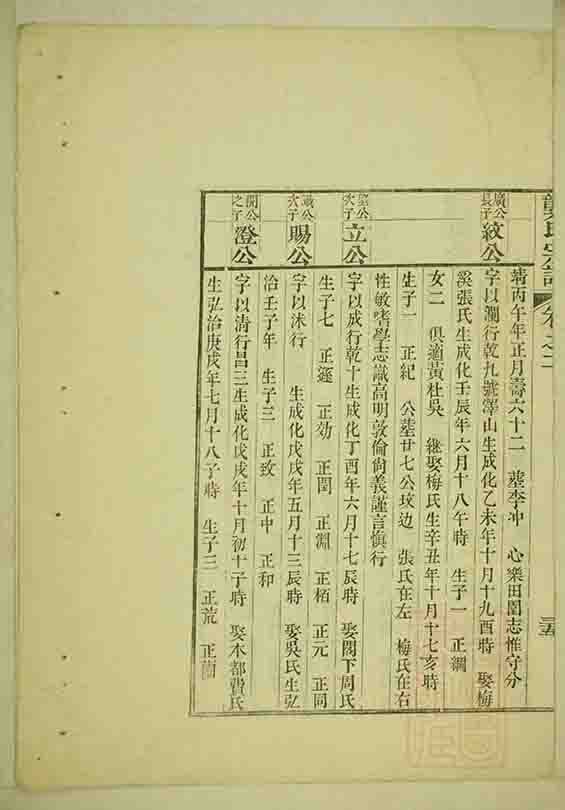 龔氏宗譜 卷之二 三五
靖丙午年正月壽六十二 塟李冲 心樂田園志惟守分
廣公長子 紋公
字以瀾行乾九號澤山生成化乙未年十月十九酉時 娶梅
溪張氏生成化壬辰年六月十八午時 生子一 正綱
女二 俱適黃杜吳 継娶梅氏生辛丑年十月十七亥時
生子一 正紀 公塟廿七公坟边 張氏在左 梅氏在右
性敏嗜學志識高明敦倫尚義謹言慎行
公次子 立公
字以成行乾十生成化丁酉年六月十七辰時 娶閣下周氏
生子七 正筳 正効 正閏 正淵 正栢 正元 正同
公次子 賜公
字以沬行 生成化戊戌年五月十三辰時 娶吳氏生弘
治壬子年 生子三 正玫 正中 正和
開公之子 澄公
字以清行昌三生成化戊戌年十月初十子時 娶本都費氏
生弘治庚戌年七月十八子時 生子三 正荒 正蘭